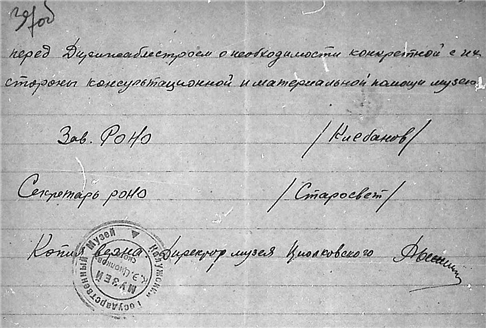 перед Дирижаблестроем о необходимости конкретной с их
стороны консультационной и материальной помощи музею
Зав. РОНО /Клебанов/
Секретарь роно /Старосвет/
Копия верна. Директор музея Циолковского
Калужский Государственный Музей
МУЗЕЙ